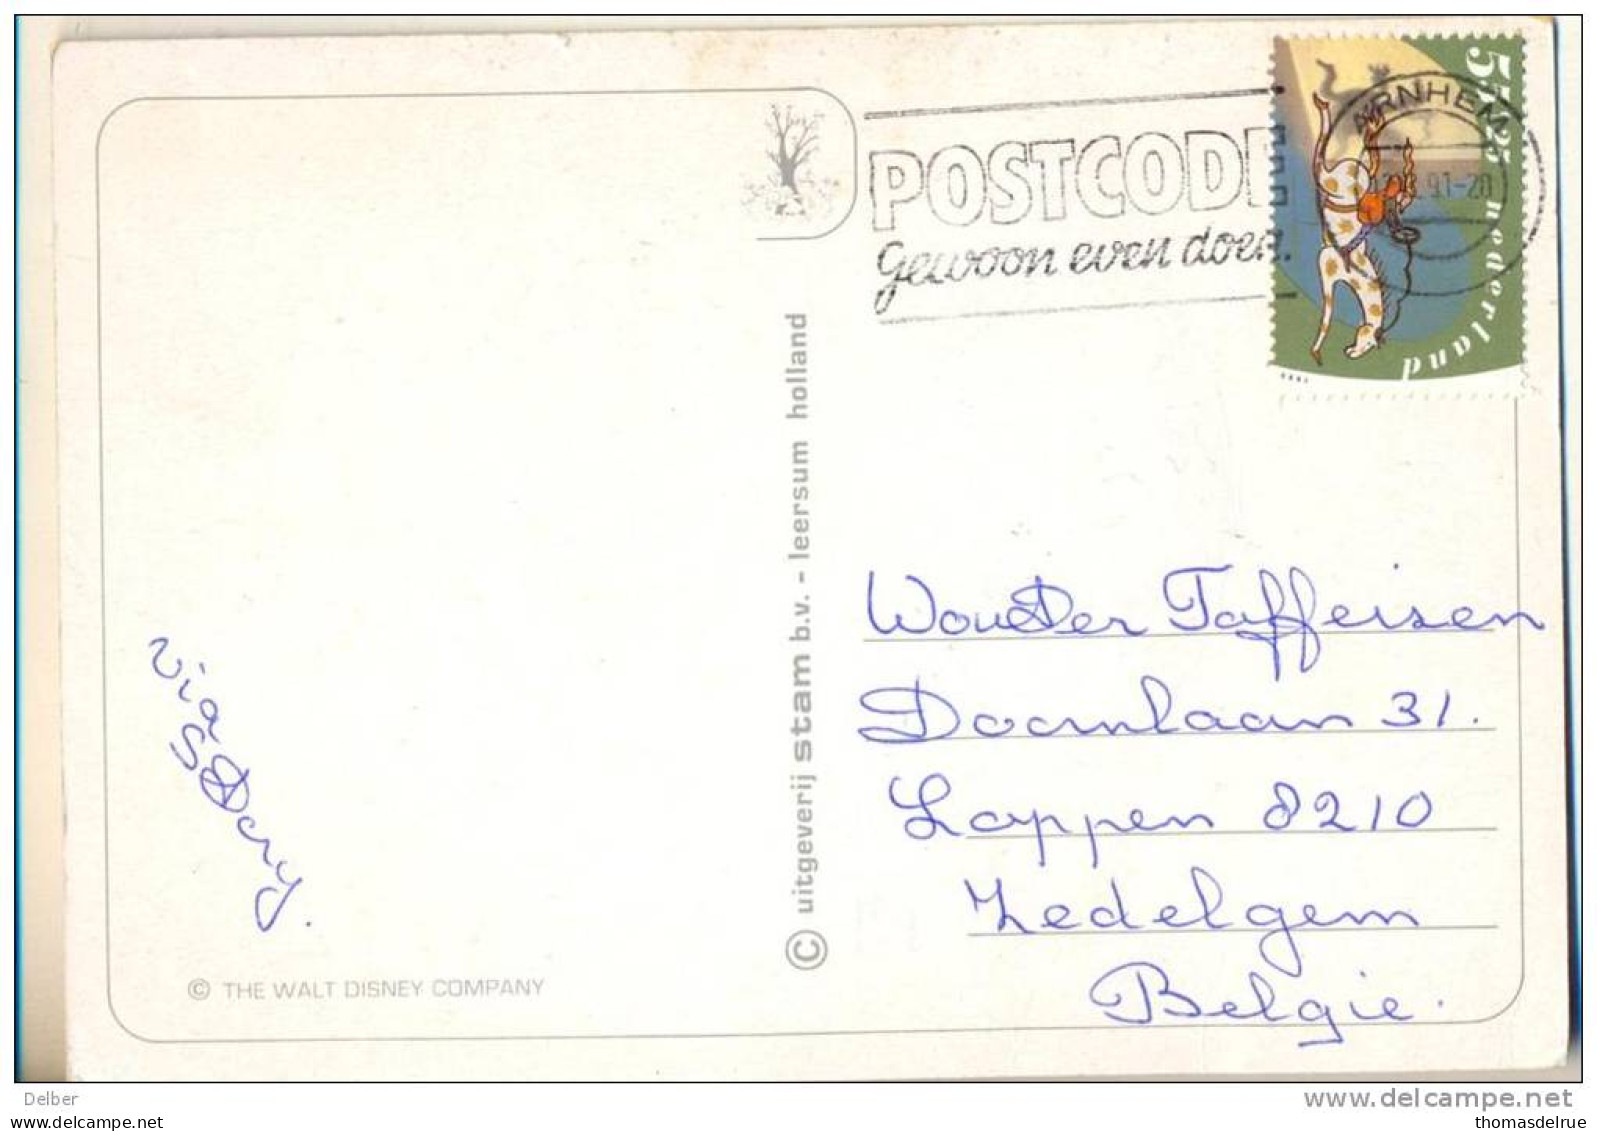 POSTCODE
gewoon even doen.
ARNHEM
91-20
55+25
nederland
© uitgeverij stam b.v. - leersum holland
Wouter Taffeisen
Doornlaan 31.
Loppen 8210
Zedelgem
Belgie.
via
© THE WALT DISNEY COMPANY
Delber
www.delcampe.net
thomasdelrue